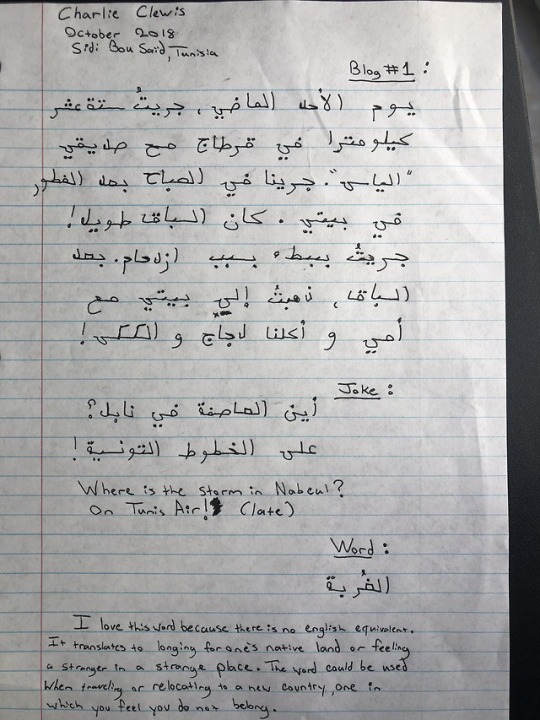 Charlie Clewis
October 2018
Sidi Bou Saïd, Tunisia
Blog #1:
يوم الأحد الماضي، جريتُ ستة عشر
كيلومترا في قرطاج مع صديقي
"الياس". جرينا في الصباح بعد الفطور
في بيتي. كان السباق طويل!
جريتُ ببطء بسبب ازدحام. بعد
السباق، ذهبتُ إلى بيتي مع
أمي و أكلنا دجاج و الككس!
Joke:
أين العاصفة في نابل؟
على الخطوط التونسية!
Where is the storm in Nabeul?
On Tunis Air! (late)
Word:
الغُربة
I love this word because there is no english equivalent.
It translates to longing for one's native land or feeling
a stranger in a strange place. The word could be used
when traveling or relocating to a new country, one in
which you feel you do not belong.